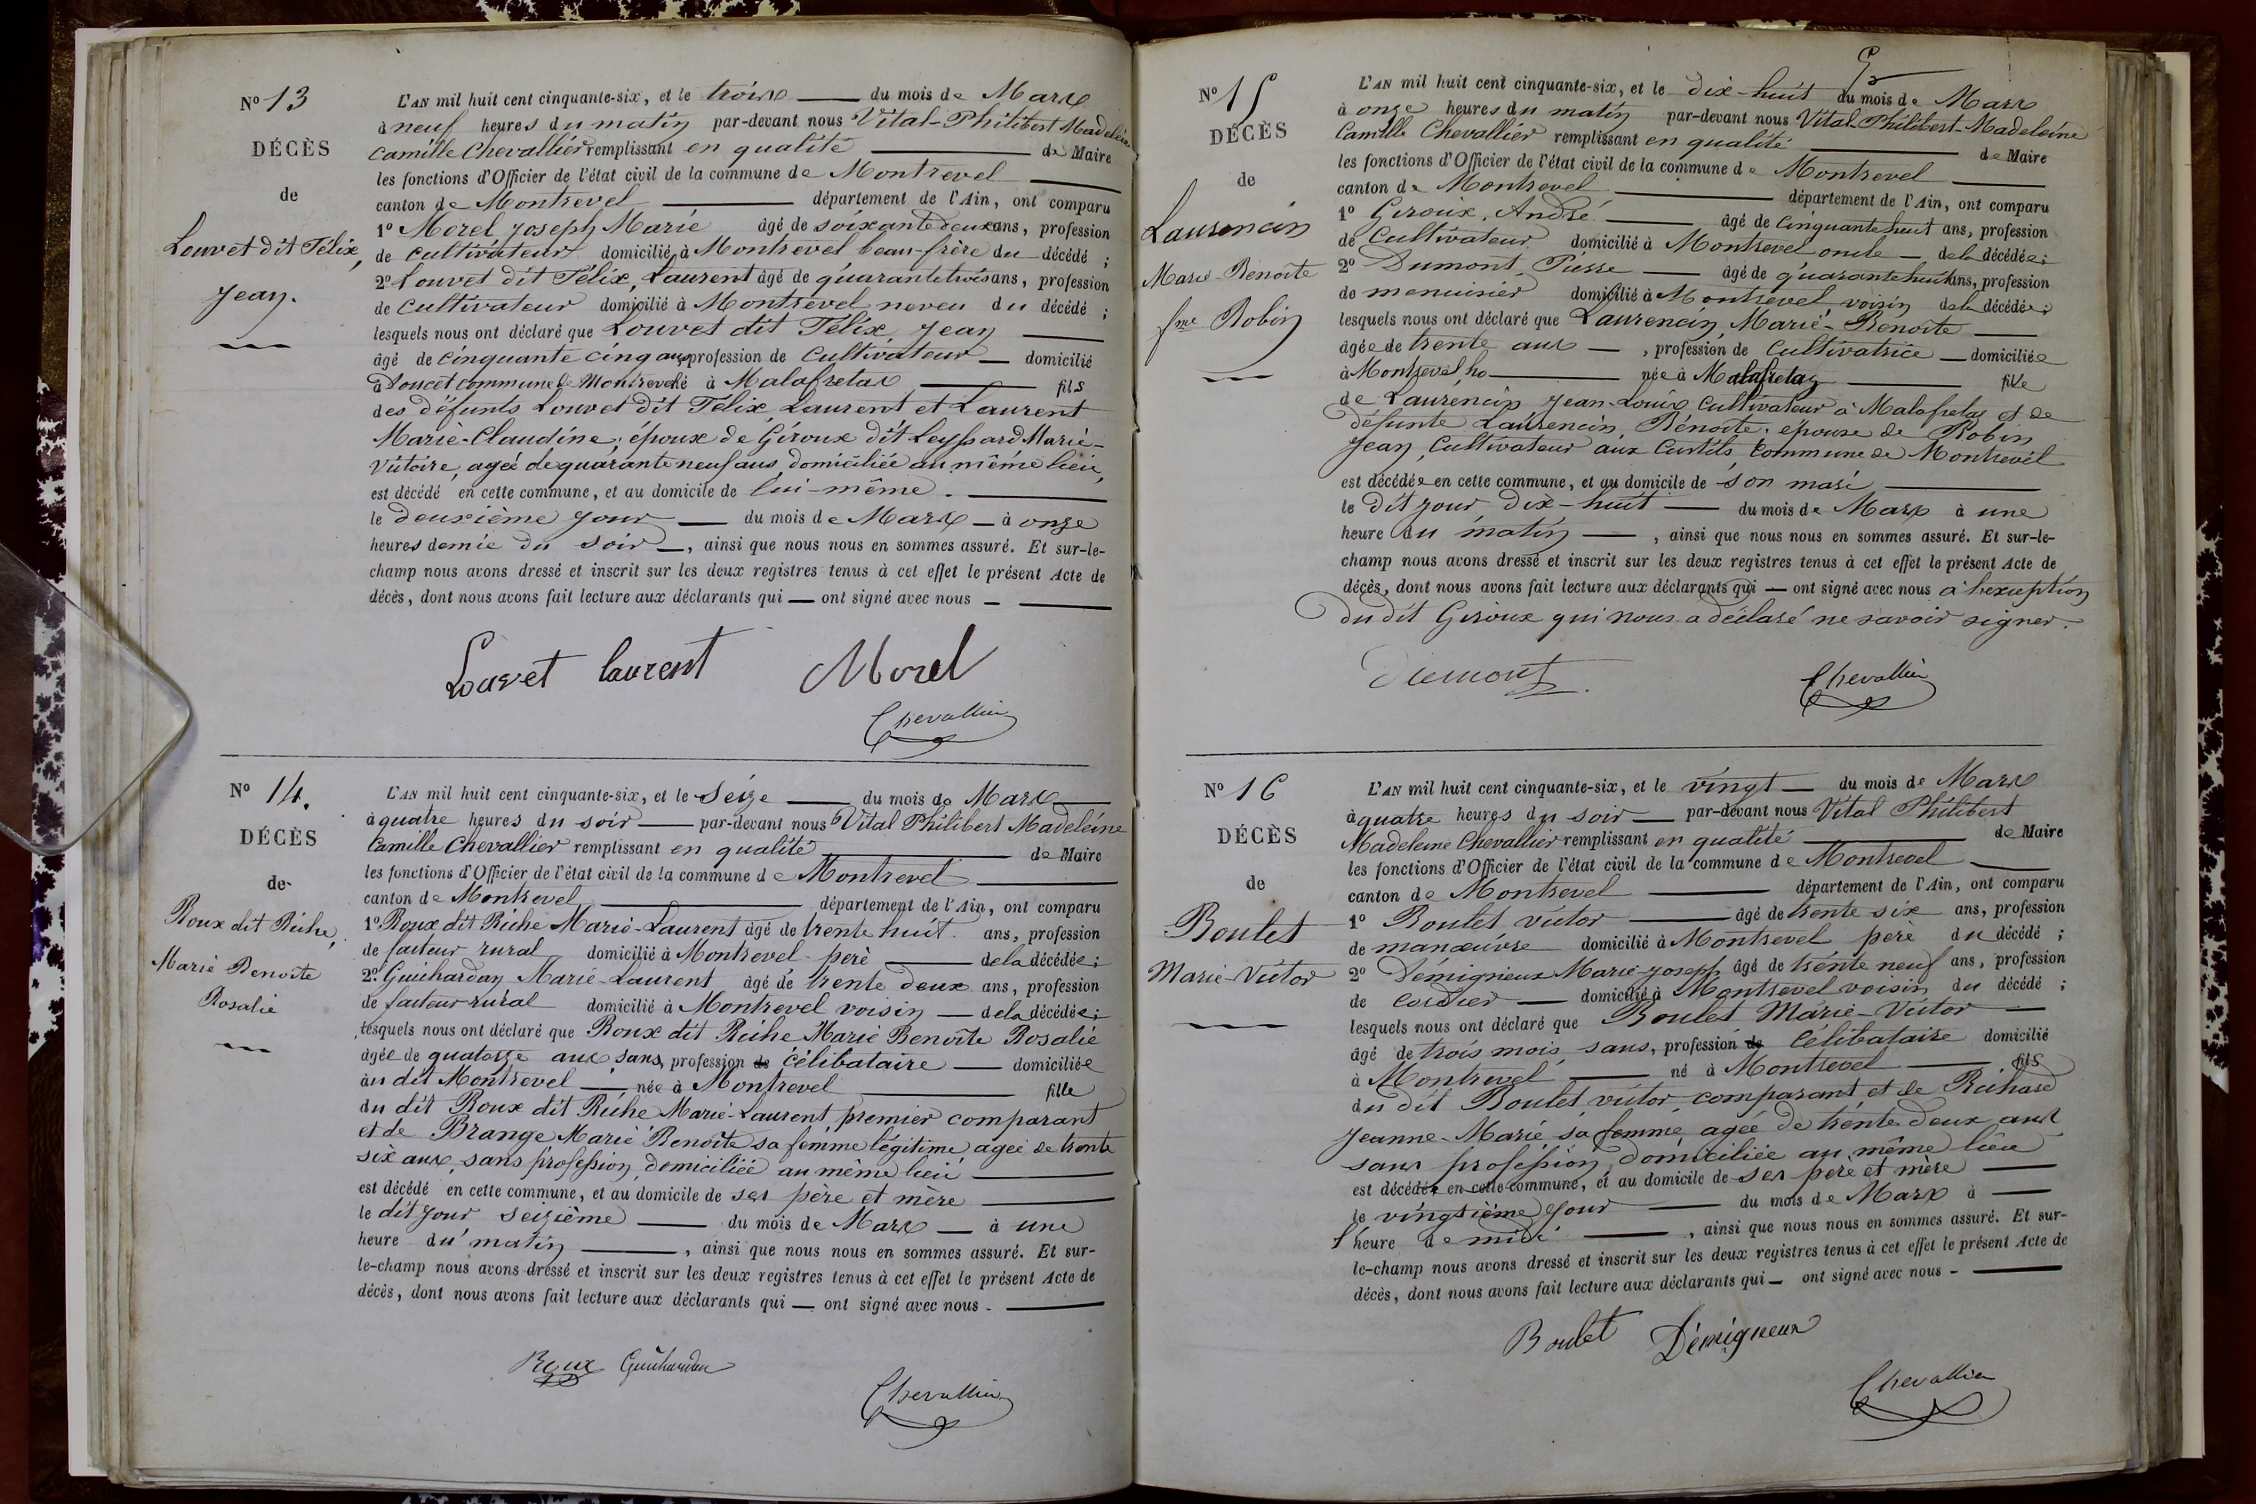 N° 13
DÉCÈS
de
Louvet dit Félix,
Jean.
L'AN mil huit cent cinquante-six, et le trois du mois de Mars
à neuf heures du matin par-devant nous Vital-Philibert Madeleine
Camille Chevallier remplissant en qualité de Maire
les fonctions d'Officier de l'état civil de la commune de Montrevel
canton de Montrevel département de l'Ain, ont comparu
1° Morel Joseph Marie âgé de soixante deux ans, profession
de cultivateur domicilié à Montrevel beau-frère du décédé ;
2° Louvet dit Félix, Laurent âgé de quarante trois ans, profession
de cultivateur domicilié à Montrevel neveu du décédé ;
lesquels nous ont déclaré que Louvet dit Félix Jean
âgé de cinquante cinq ans, profession de cultivateur domicilié
à Doucet commune de Montrevel né à Malafretaz fils
des défunts Louvet dit Félix Laurent et Laurent
Marie-Claudine ; époux de Giroux dit Leyssard Marie-
Victoire, agée de quarante neuf ans, domiciliée au même lieu,
est décédé en cette commune, et au domicile de lui-même.
le deuxième jour du mois de Mars à onze
heures demie du soir, ainsi que nous nous en sommes assuré. Et sur-le-
champ nous avons dressé et inscrit sur les deux registres tenus à cet effet le présent Acte de
décès, dont nous avons fait lecture aux déclarants qui ont signé avec nous
Louvet laurent Morel
Chevallier
N° 14.
DÉCÈS
de
Roux dit Riche,
Marie Benoîte
Rosalie
L'AN mil huit cent cinquante-six, et le seize du mois de Mars
à quatre heures du soir par-devant nous Vital Philibert Madeleine
Camille Chevallier remplissant en qualité de Maire
les fonctions d'Officier de l'état civil de la commune de Montrevel
canton de Montrevel département de l'Ain, ont comparu
1° Roux dit Riche Marie-Laurent âgé de trente huit ans, profession
de facteur rural domicilié à Montrevel père de la décédée ;
2° Guichardan Marie-Laurent âgé de trente deux ans, profession
de facteur rural domicilié à Montrevel voisin de la décédée ;
lesquels nous ont déclaré que Roux dit Riche Marie Benoîte Rosalie
âgée de quatorze ans, sans, profession de célibataire domiciliée
au dit Montrevel née à Montrevel fille
du dit Roux dit Riche Marie-Laurent, premier comparant
et de Brange Marie Benoîte sa femme légitime, agée de trente
six ans, sans profession, domiciliée au même lieu
est décédé en cette commune, et au domicile de ses père et mère
le dit jour seizième du mois de Mars à une
heure du matin, ainsi que nous nous en sommes assuré. Et sur-
le-champ nous avons dressé et inscrit sur les deux registres tenus à cet effet le présent Acte de
décès, dont nous avons fait lecture aux déclarants qui ont signé avec nous.
Roux Guichardan
Chevallier
N° 15
DÉCÈS
de
Laurencin
Marie-Benoîte
fme Robin
L'AN mil huit cent cinquante-six, et le dix-huit du mois de Mars
à onze heures du matin par-devant nous Vital-Philibert-Madeleine
Camille Chevallier remplissant en qualité de Maire
les fonctions d'Officier de l'état civil de la commune de Montrevel
canton de Montrevel département de l'Ain, ont comparu
1° Giroux, André âgé de cinquante huit ans, profession
de cultivateur domicilié à Montrevel oncle de la décédée ;
2° Dumont, Pierre âgé de quarante huit ans, profession
de menuisier domicilié à Montrevel voisin de la décédée ;
lesquels nous ont déclaré que Laurencin, Marie-Benoîte
âgée de trente ans, profession de cultivatrice domiciliée
à Montrevel née à Malafretaz fille
de Laurencin Jean-Louis cultivateur à Malafretaz et de
défunte Laurencin Benoîte ; épouse de Robin
Jean, cultivateur aux Curtils, commune de Montrevel
est décédée en cette commune, et au domicile de son mari
le dit jour dix-huit du mois de Mars à une
heure du matin, ainsi que nous nous en sommes assuré. Et sur-le-
champ nous avons dressé et inscrit sur les deux registres tenus à cet effet le présent Acte de
décès, dont nous avons fait lecture aux déclarants qui ont signé avec nous à l'exception
du dit Giroux qui nous a déclaré ne savoir signer.
Dumont Chevallier
N° 16
DÉCÈS
de
Boulet
Marie-Victor
L'AN mil huit cent cinquante-six, et le vingt du mois de Mars
à quatre heures du soir par-devant nous Vital Philibert
Madeleine Chevallier remplissant en qualité de Maire
les fonctions d'Officier de l'état civil de la commune de Montrevel
canton de Montrevel département de l'Ain, ont comparu
1° Boulet Victor âgé de trente six ans, profession
de manœuvre domicilié à Montrevel père du décédé ;
2° Démigneux Marie-Joseph âgé de trente neuf ans, profession
de cordier domicilié à Montrevel voisin du décédé ;
lesquels nous ont déclaré que Boulet Marie-Victor
âgé de trois mois, sans, profession de célibataire domicilié
à Montrevel né à Montrevel fils
du dit Boulet Victor comparant et de Richard
Jeanne-Marie sa femme agée de trente deux ans
sans profession, domiciliée au même lieu
est décédé en cette commune, et au domicile de ses père et mère
le vingtième jour du mois de Mars à
l'heure de midi, ainsi que nous nous en sommes assuré. Et sur-
le-champ nous avons dressé et inscrit sur les deux registres tenus à cet effet le présent Acte de
décès, dont nous avons fait lecture aux déclarants qui ont signé avec nous
Boulet Démigneux
Chevallier